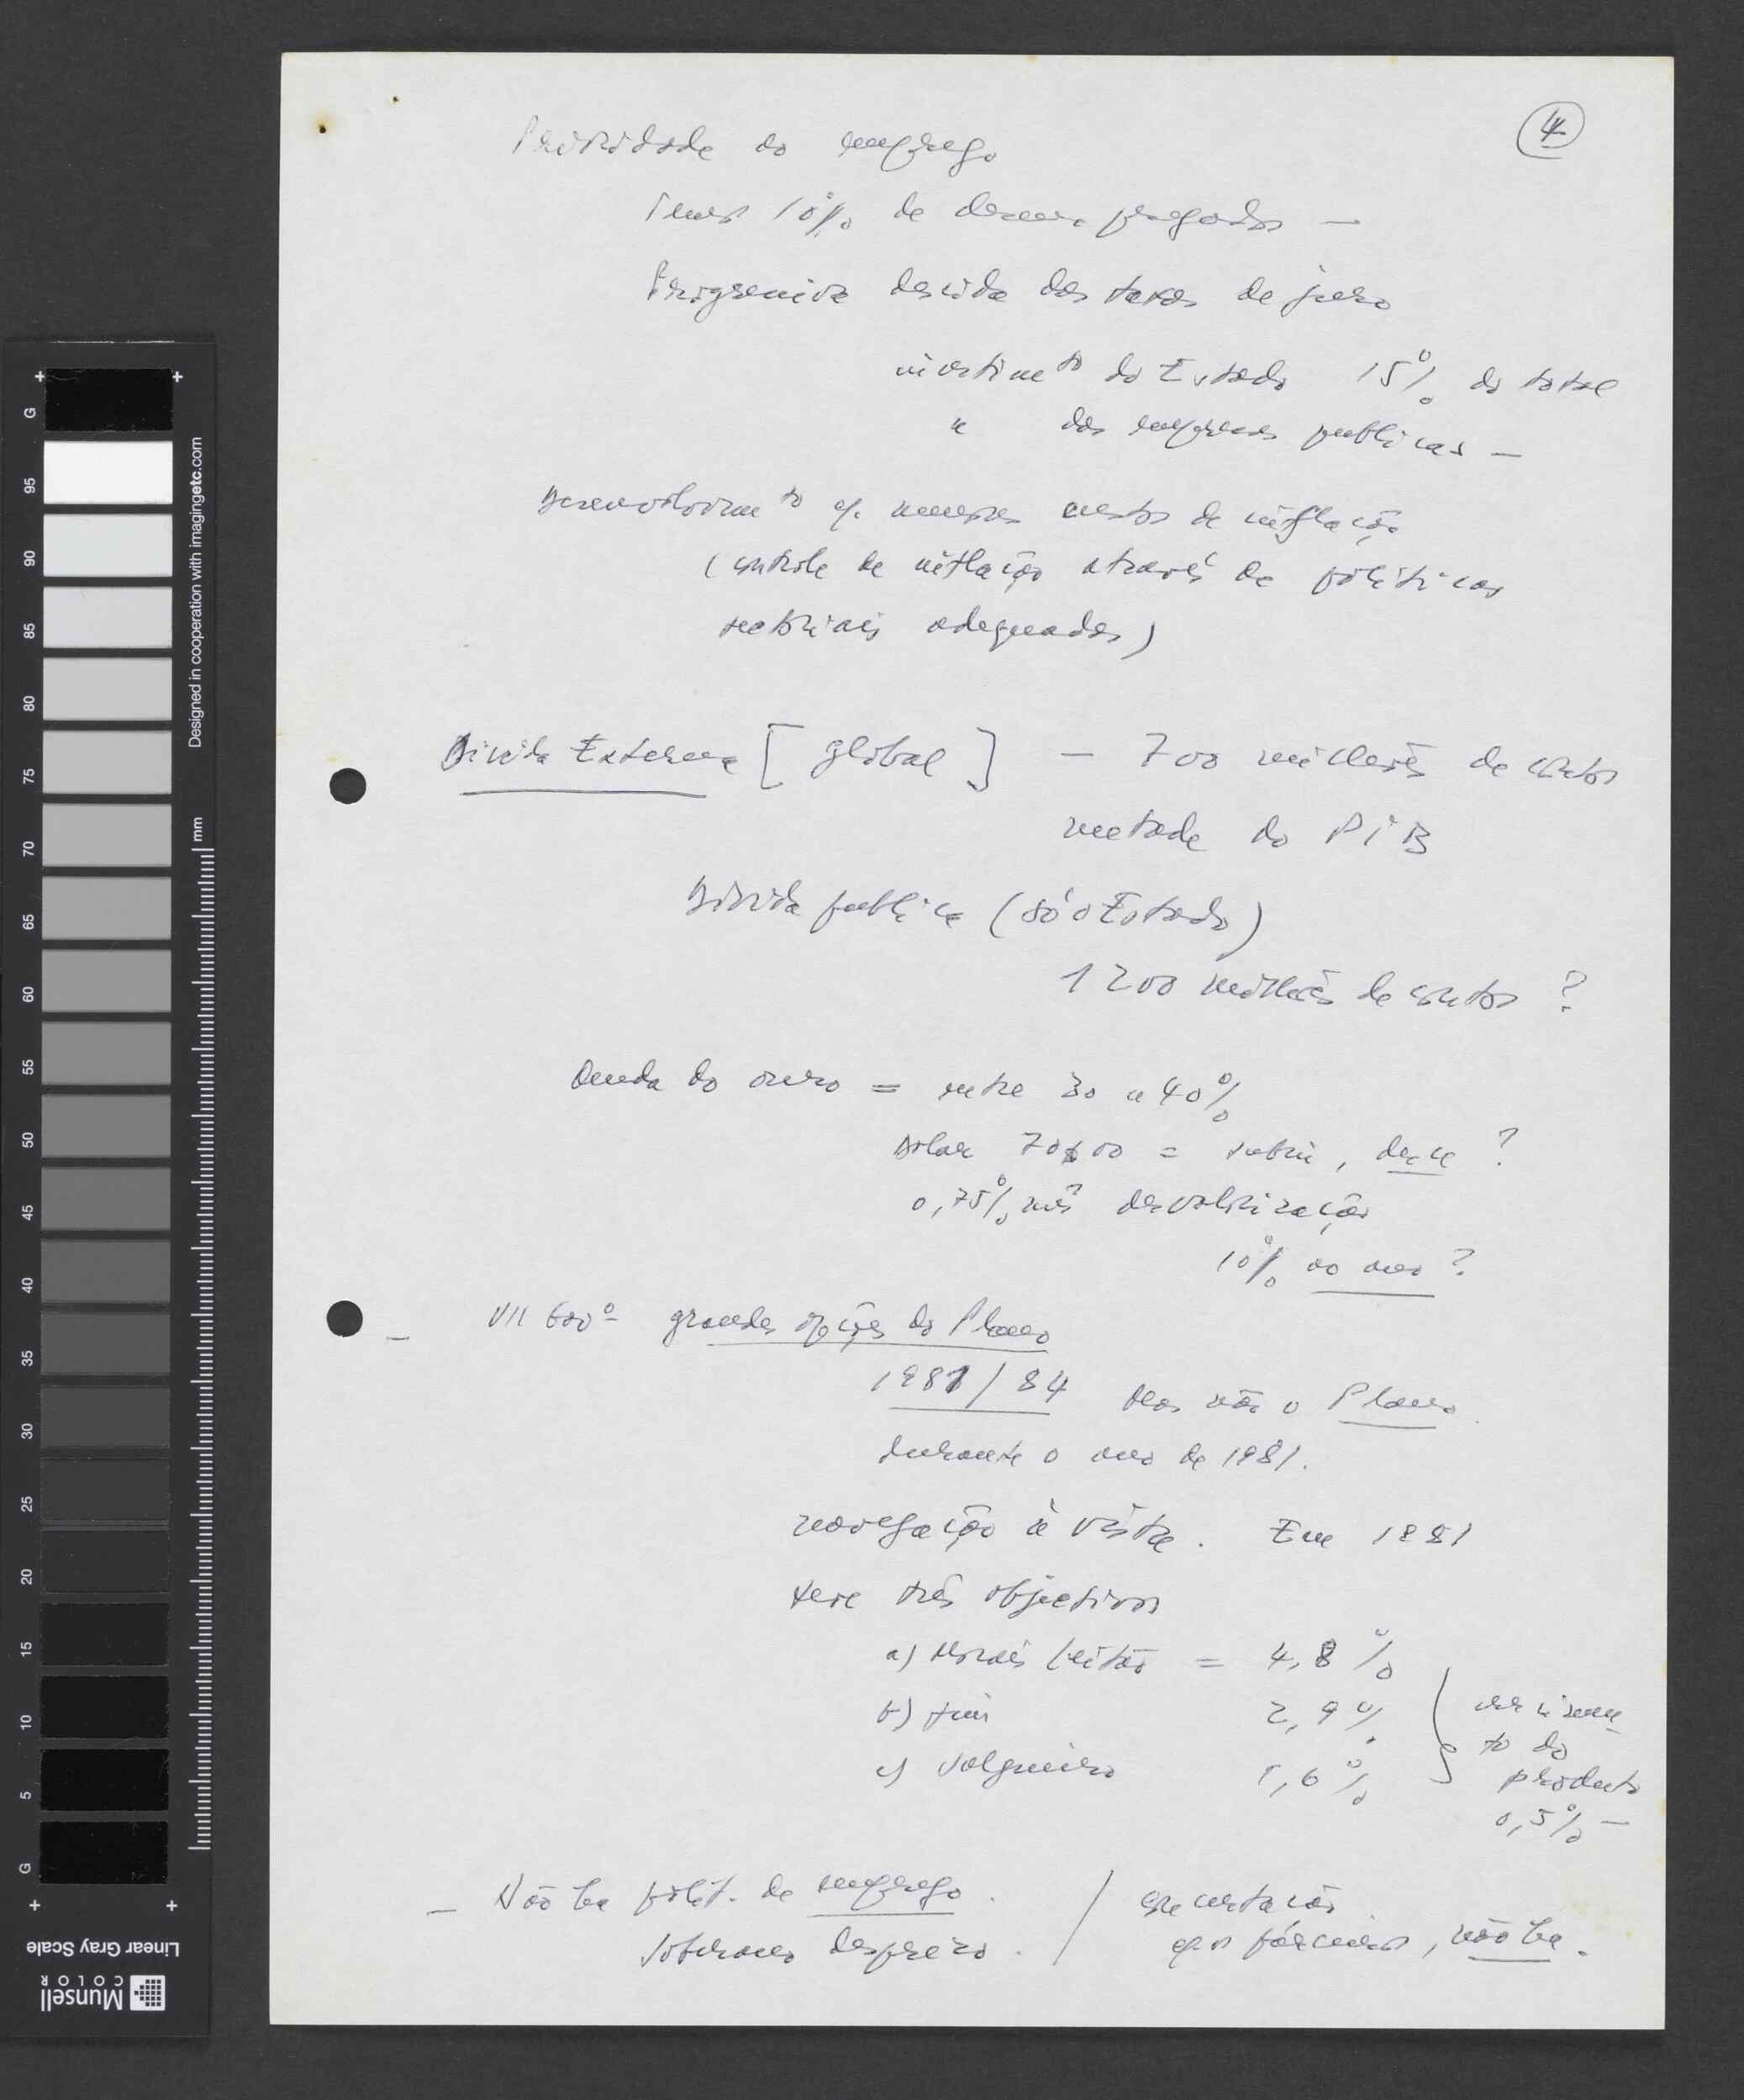 4
Prioridade ao emprego
Temos 10% de desempregados —
Progressiva descida das taxas de juro
investimto do Estado 15% do total
" das empresas publicas —
Desenvolvimto c/ menores custos de inflação
(controle de inflação através de politicas
sectoriais adequadas)
Divida Externa [global] — 700 milhões de contos
metade do PIB
Divida publica (só o Estado)
1200 milhões de contos ?
do ouro = entre 30 a 40%
Dolar 70$00 = subiu, desce ?
0,75% mês desvalorização
10% ao ano ?
— VII Govº — grandes opções do Plano
1981/84 Mas não o Plano.
durante o ano de 1981.
navegação à vista. Em 1981
teve três objectivos
a) Morais Leitão = 4,8%
b) 2,9%
c) Salgueiro 1,6%
crescimen
to do
producto
0,5% —
— Não ha polit. de emprego.
Soberano desprezo.
/ concertação
c/ os parceiros, não ha.
Designed in cooperation with imagingetc.com
mm
G 95 90 85 80 75 70 65 60 55 50 45 40 35 30 25 20 15 10 5 G
Linear Gray Scale
Munsell
COLOR